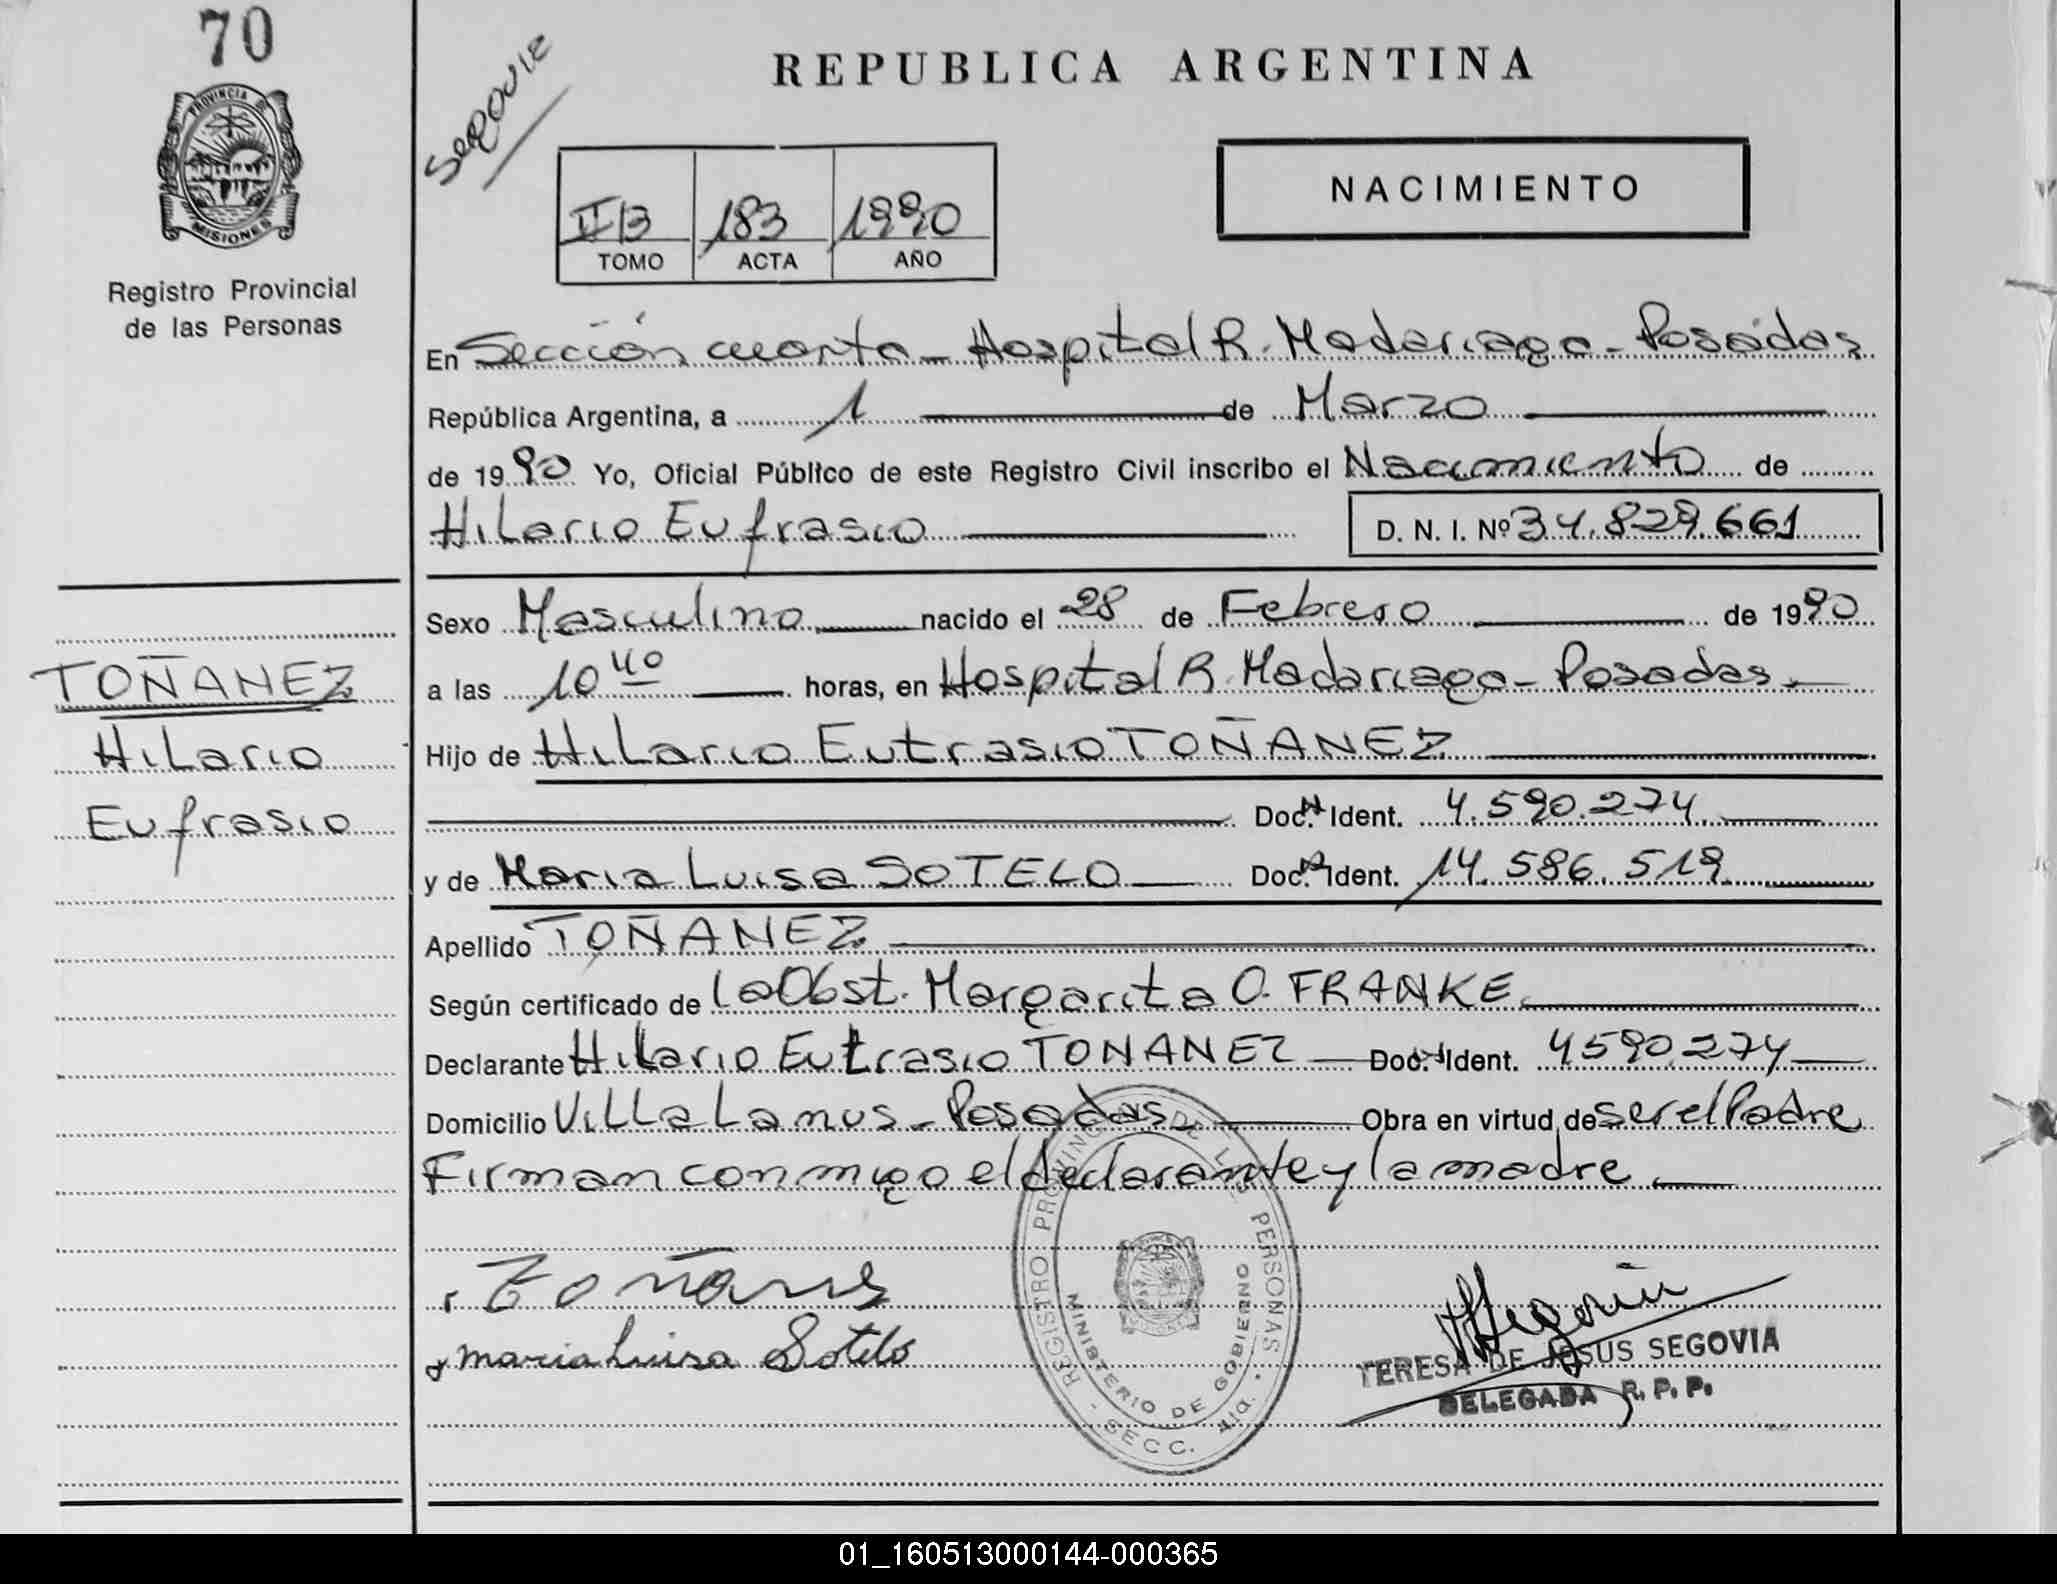 70
PROVINCIA DE
MISIONES
Registro Provincial
de las Personas
TOÑANEZ
Hilario
Eufrasio
Segovia
REPUBLICA ARGENTINA
II B 183 1990
TOMO ACTA AÑO
NACIMIENTO
En Sección cuarta - Hospital R. Madariaga - Posadas
República Argentina, a 1 de Marzo
de 1990 Yo, Oficial Público de este Registro Civil inscribo el Nacimiento de
Hilario Eufrasio D. N. I. Nº 34.829.661
Sexo Masculino nacido el 28 de Febrero de 1990
a las 10 40 horas, en Hospital R. Madariaga - Posadas.
Hijo de Hilario Eutrasio TOÑANEZ
Doc. Ident. 4.590.274
y de Maria Luisa SOTELO Doc. Ident. 14.586.519
Apellido TOÑANEZ
Según certificado de la Obst. Margarita O. FRANKE.
Declarante Hilario Eutrasio TONANEZ Doc. Ident. 4590.274
Domicilio Villa Lanus - Posadas Obra en virtud de ser el Padre
Firman conmigo el declarante y la madre.
maria Luisa Sotelo
REGISTRO PROVINCIAL DE LAS PERSONAS
MINISTERIO DE GOBIERNO
SECC. 4ta.
Segovia
TERESA DE JESUS SEGOVIA
DELEGADA R. P. P.
01_160513000144-000365